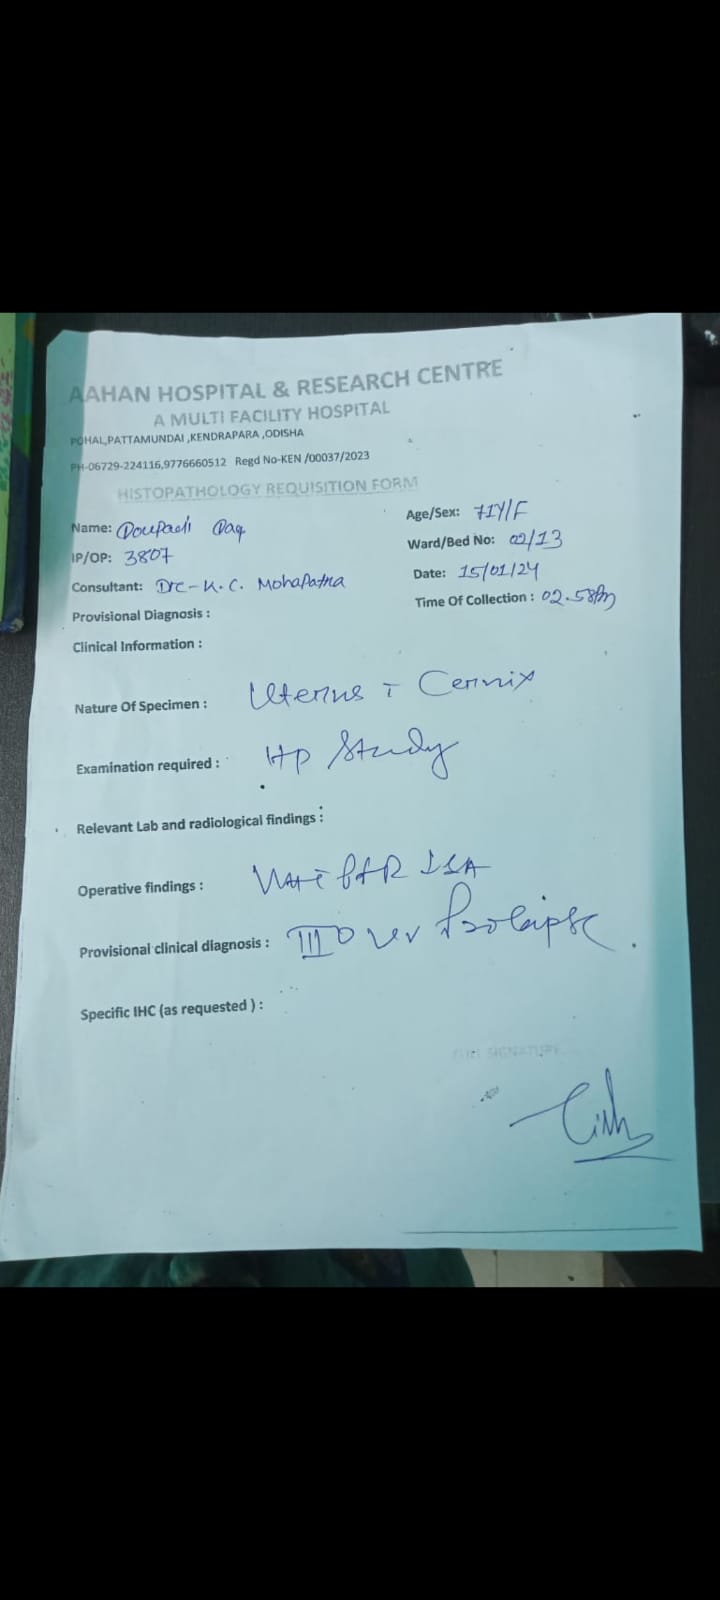 AAHAN HOSPITAL & RESEARCH CENTRE
A MULTI FACILITY HOSPITAL
POHAL,PATTAMUNDAI ,KENDRAPARA ,ODISHA
PH-06729-224116,9776660512 Regd No-KEN /00037/2023
HISTOPATHOLOGY REQUISITION FORM
Name:
Age/Sex: 71Y/F
IP/OP: 3807
Ward/Bed No: 02/13
Consultant: Dr - K.C. Mohapatra
Date: 15/01/24
Provisional Diagnosis :
Time Of Collection : 02.58Pm
Clinical Information :
Nature Of Specimen : Uterus c̄ Cervix
Examination required : Hp Study
Relevant Lab and radiological findings :
Operative findings :
Provisional clinical diagnosis : III° uv Prolapse.
Specific IHC (as requested ) :
SIGNATURE